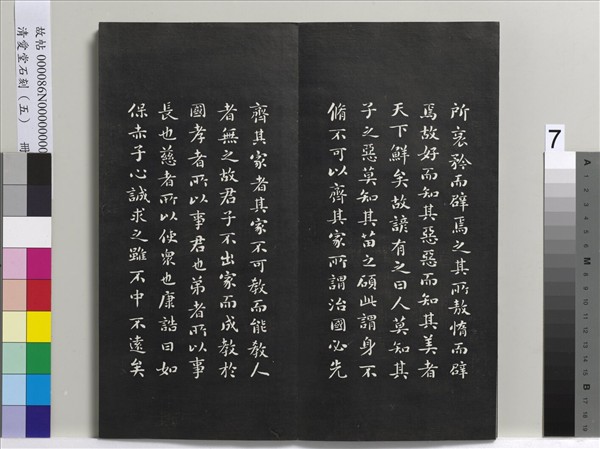 所哀矜而辟焉之其所敖惰而辟
焉故好而知其惡惡而知其美者
天下鮮矣故諺有之曰人莫知其
子之惡莫知其苗之碩此謂身不
脩不可以齊其家所謂治國必先
齊其家者其家不可教而能教人
者無之故君子不出家而成教於
國孝者所以事君也弟者所以事
長也慈者所以使衆也康誥曰如
保赤子心誠求之雖不中不遠矣
故帖 000086N00000000
清愛堂石刻（五） 冊
7
A
M
B